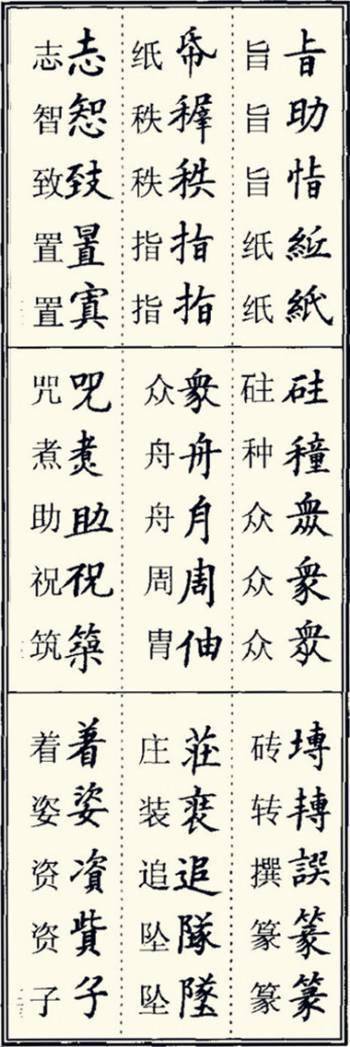 㫖助恉紙
旨旨旨纸纸
帋秩指指
纸秩秩指指
志恕致置寘
志智致置置
種眾衆衆
砫种众众众
衆舟月周伷
众舟舟周胄
呪煑助祝築
咒煮助祝筑
塼轉譔篆篆
砖转撰篆篆
莊裝追隊墜
庄装追坠坠
着姿資貲子
着姿资资子